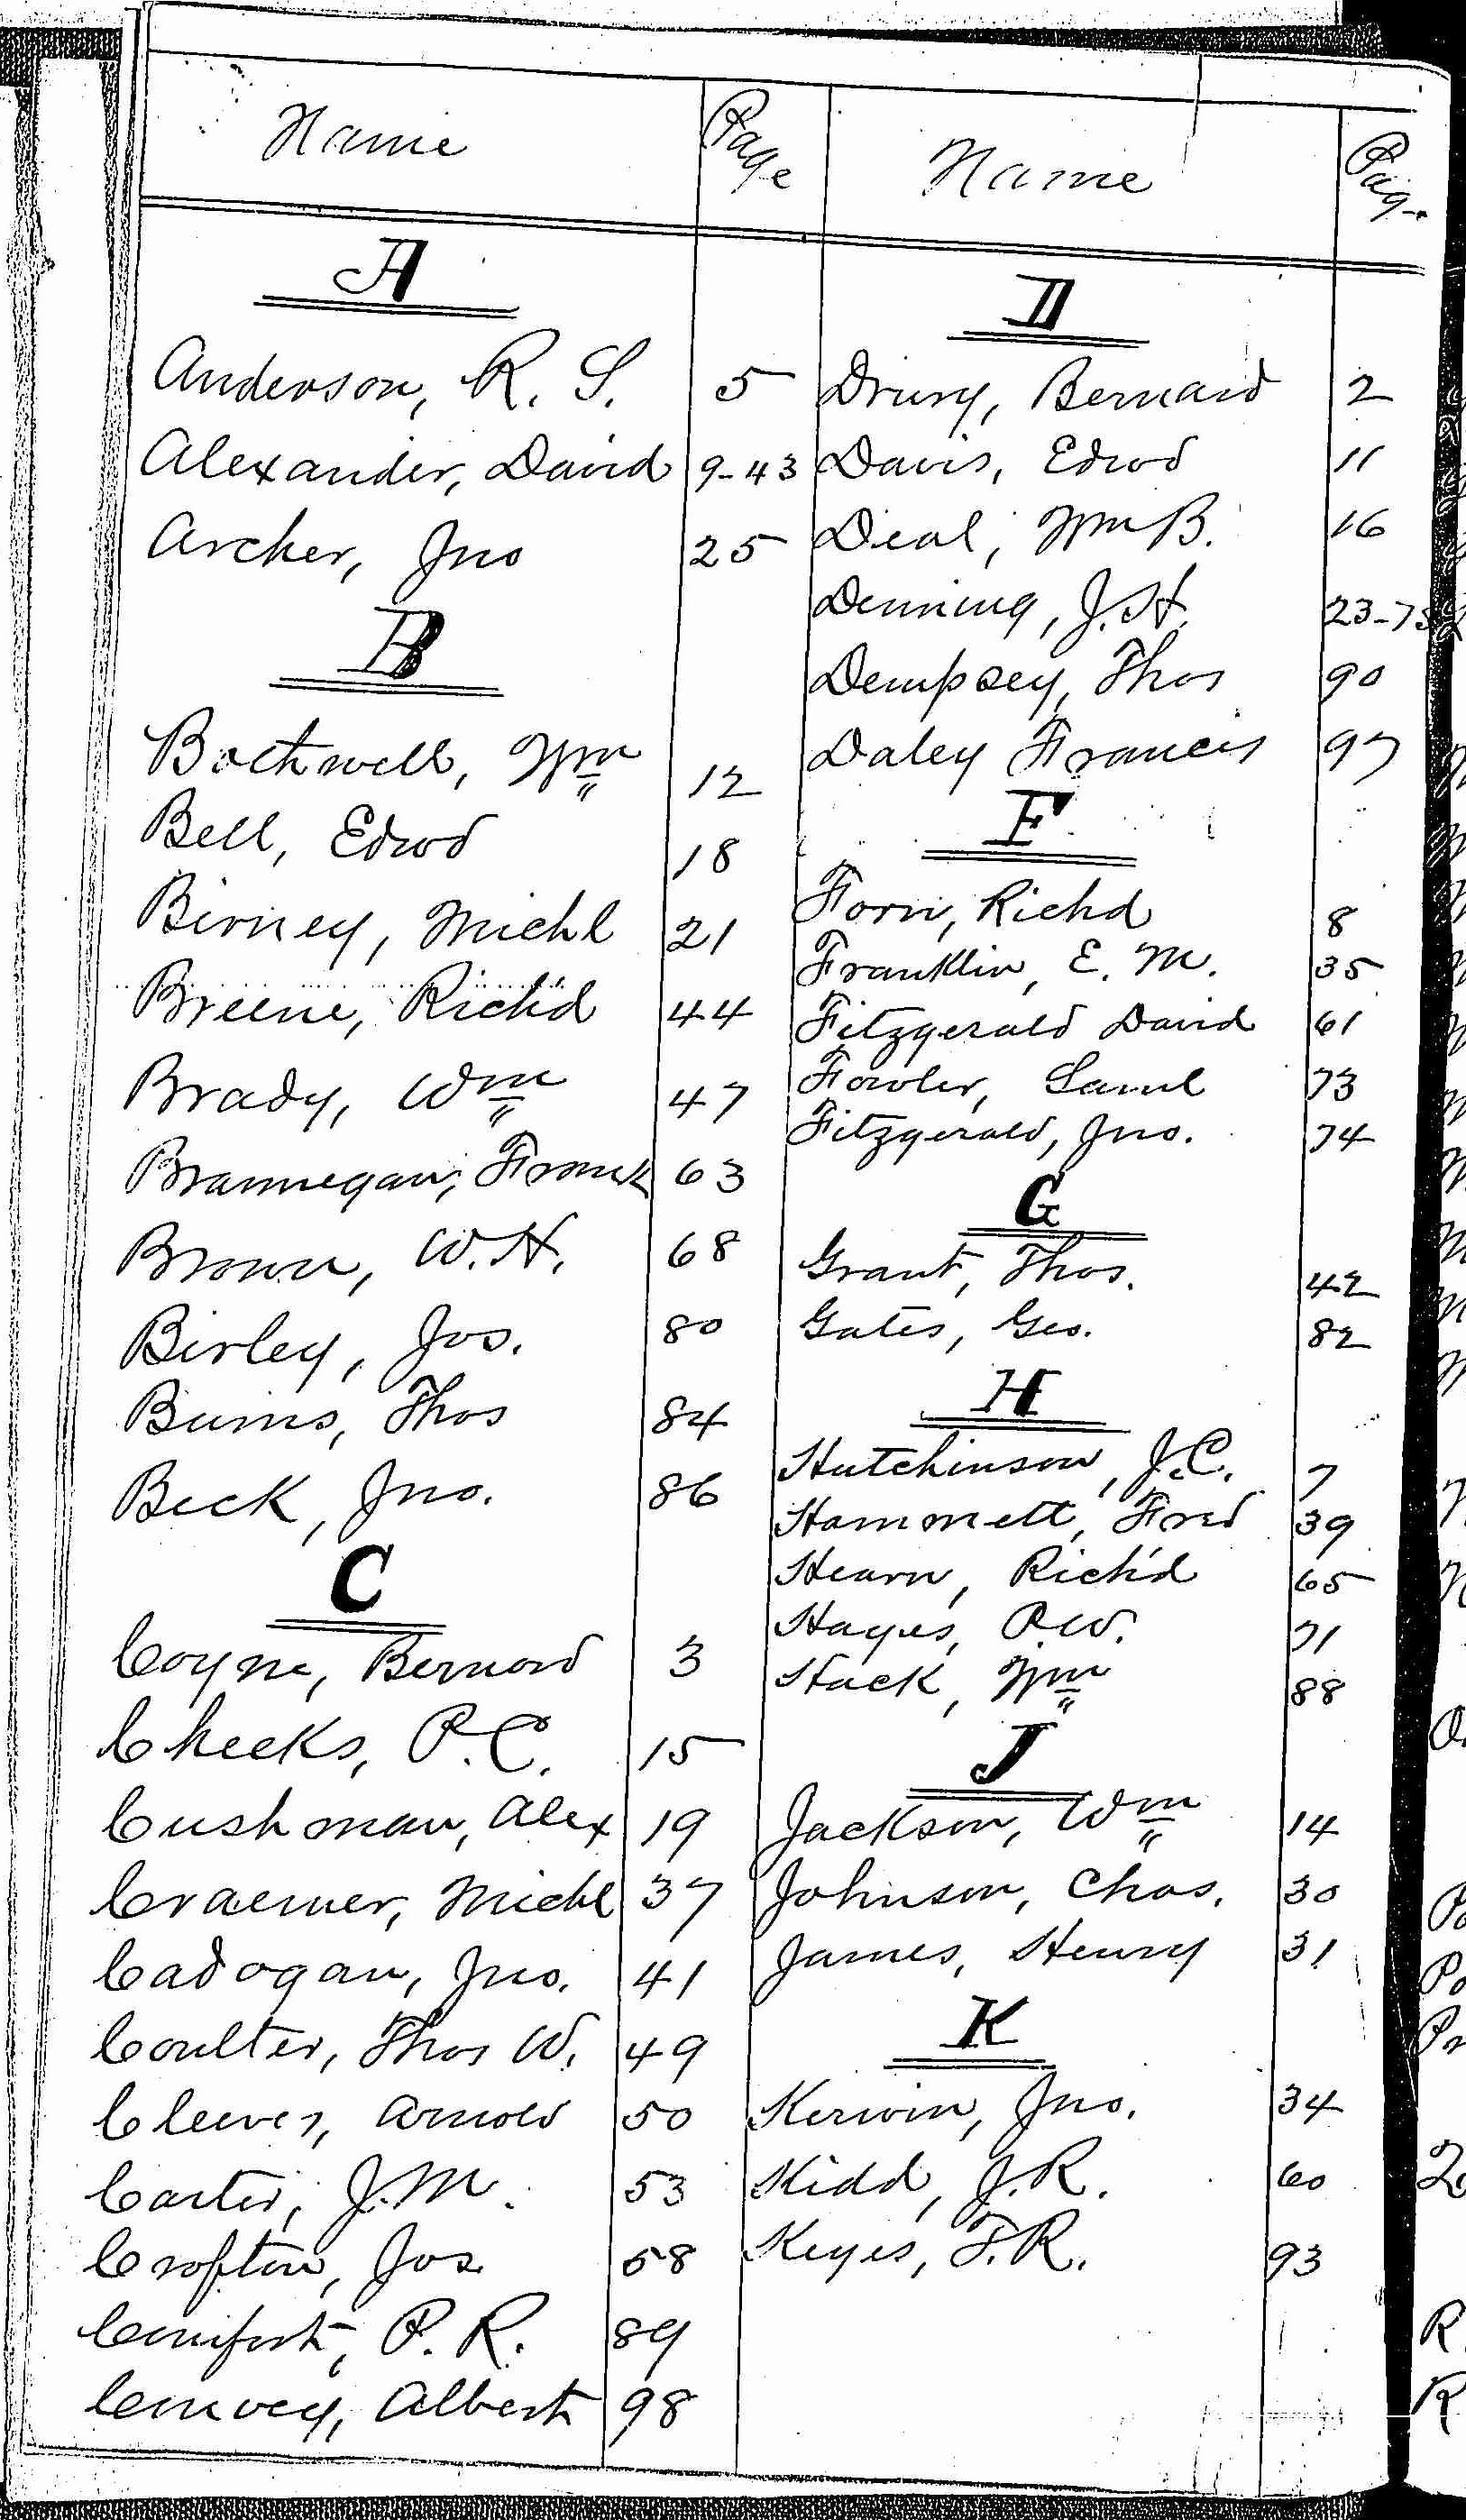 Name Page
A
Anderson, R. S. 5
Alexander, David 9-43
Archer, Jno 25
B
Bothwell, Wm 12
Bell, Edwd 18
Birney, Michl 21
Breene, Rich'd 44
Brady, Wm 47
Brannegan, Frank 63
Brown, W. H. 68
Birley, Jos. 80
Burns, Thos 84
Beck, Jno. 86
C
Coyne, Bernard 3
Cheeks, P. C. 15
Cushman, Alex 19
Craemer, Michl 37
Cadogan, Jno. 41
Coulter, Thos W. 49
Cleeves, Arnold 50
Carter, J. M. 53
Crofton, Jos. 58
Comfort, P. R. 89
Convey, Albert 98
Name Page
D
Drury, Bernard 2
Davis, Edwd 11
Deal, Wm B. 16
Denning, J. H. 23-75
Dempsey, Thos 90
Daley Francis 97
F
Forn, Richd 8
Franklin, E. M. 35
Fitzgerald David 61
Fowler, Saml 73
Fitzgerald, Jno. 74
G
Grant, Thos. 42
Gates, Geo. 82
H
Hutchinson, J. C. 7
Hammett, Fred 39
Hearn, Rich'd 65
Hayes, P. W. 71
Hack, Wm 88
J
Jackson, Wm 14
Johnson, Chas. 30
James, Henry 31
K
Kerwin, Jno. 34
Kidd, J. R. 60
Keyes, F. R. 93